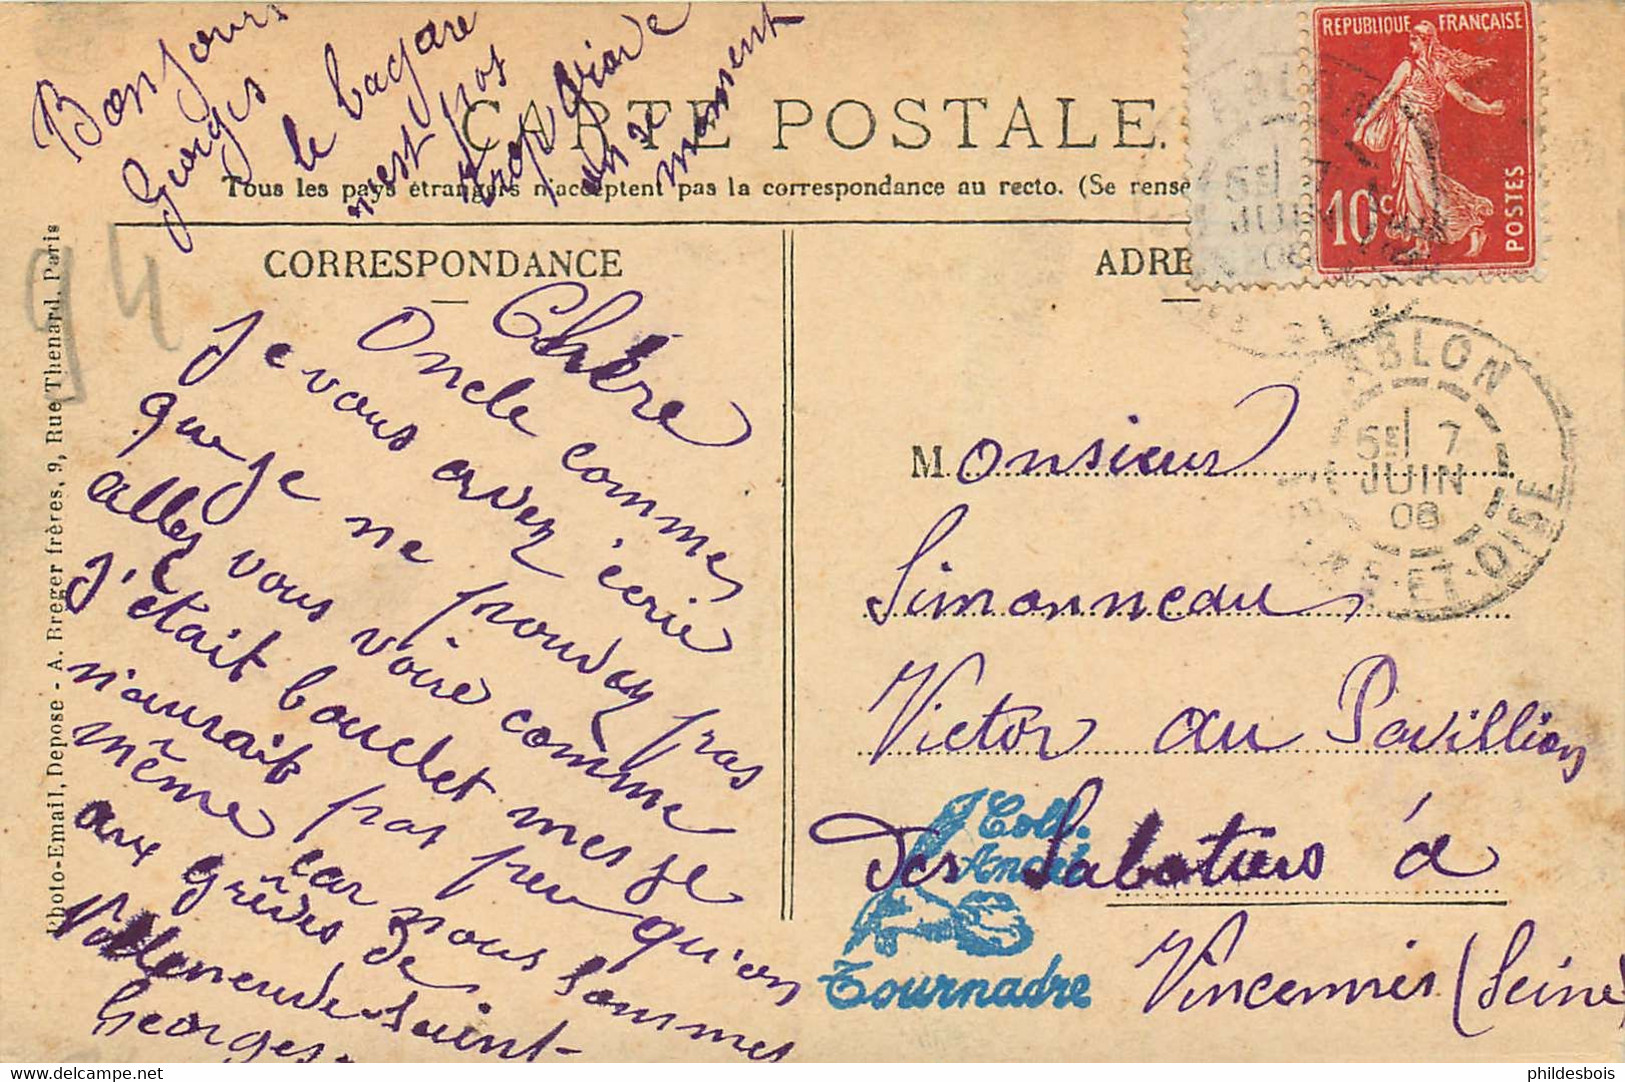 Bonjours
Georges
le bagare
n'est pas
trop grave
en ce
moment
CARTE POSTALE.
Tous les pays étrangers n'acceptent pas la correspondance au recto. (Se rense
REPUBLIQUE FRANÇAISE
10c
POSTES
CORRESPONDANCE
ADRE
94
Photo-Email, Depose - A. Breger frères, 9, Rue Thenard, Paris
Chère
Oncle comme
Je vous avez écrie
que je ne pouvez pas
aller vous voire comme
j'était bouclet mes je
n'aurait pas peu qu'on
même car nous sommes
aux grêves de
Villeneuve-Saint-
Georges
Monsieur
Simonneau
Victor au Pavillion
des Sabotiers à
Vincennes (Seine
ABLON
5E 7
JUIN
08
SEINE-ET-OISE
Coll.
Ancel
Tournadre
www.delcampe.net
phildesbois